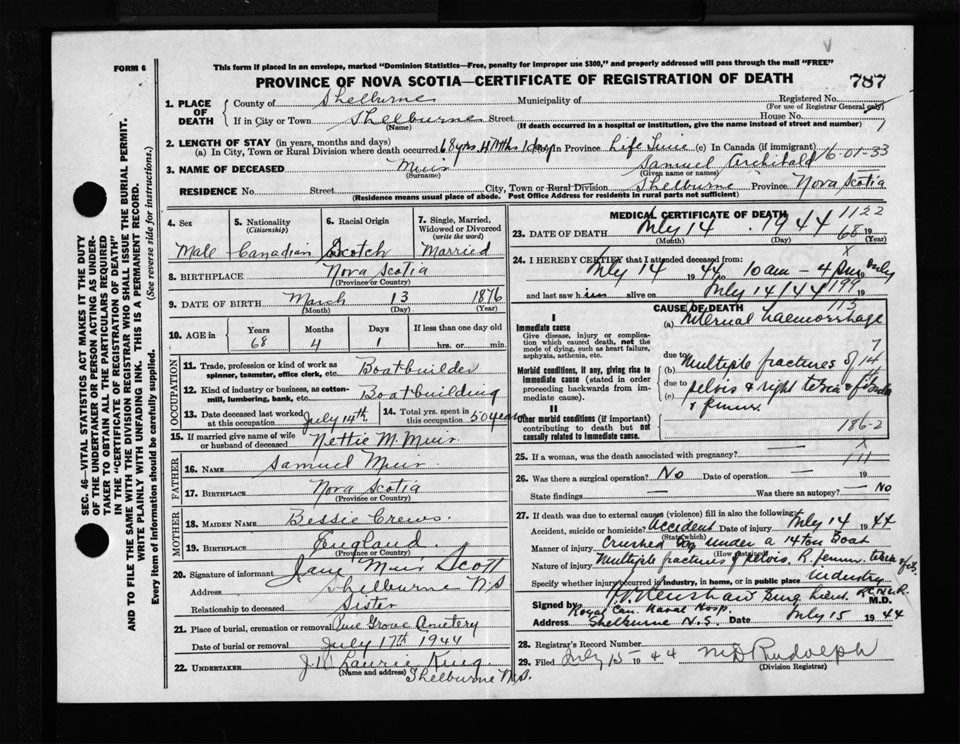 FORM 6
This form if placed in an envelope, marked "Dominion Statistics—Free, penalty for improper use $300," and properly addressed will pass through the mail "FREE"
PROVINCE OF NOVA SCOTIA—CERTIFICATE OF REGISTRATION OF DEATH
787
1. PLACE OF DEATH
County of Shelburne Municipality of Registered No.
(For use of Registrar General only)
If in City or Town Shelburne Street House No.
(Name) (If death occurred in a hospital or institution, give the name instead of street and number)
2. LENGTH OF STAY (in years, months and days)
(a) In City, Town or Rural Division where death occurred 68 yrs. 4 Mths 1 day In Province Life Time (c) In Canada (if immigrant)
3. NAME OF DECEASED Muir Samuel Archibald 16-01-33
(Surname) (Given name or names)
RESIDENCE No. Street City, Town or Rural Division Shelburne Province Nova Scotia
(Residence means usual place of abode. Post Office Address for residents in rural parts not sufficient)
4. Sex
Male
5. Nationality
(Citizenship)
Canadian
6. Racial Origin
Scotch
7. Single, Married, Widowed or Divorced
(write the word)
Married
8. BIRTHPLACE Nova Scotia
(Province or Country)
9. DATE OF BIRTH March 13 1876
(Month) (Day) (Year)
10. AGE in Years Months Days If less than one day old
68 4 1 hrs. or min.
OCCUPATION
11. Trade, profession or kind of work as spinner, teamster, office clerk, etc. Boatbuilder
12. Kind of industry or business, as cotton-mill, lumbering, bank, etc. Boatbuilding
13. Date deceased last worked at this occupation July 14th 14. Total yrs. spent in this occupation 50 years
15. If married give name of wife or husband of deceased Nettie M. Muir
FATHER
16. NAME Samuel Muir
17. BIRTHPLACE Nova Scotia
(Province or Country)
MOTHER
18. MAIDEN NAME Bessie Crews
19. BIRTHPLACE England
(Province or Country)
20. Signature of informant Jane Muir Scott
Address Shelburne N.S
Relationship to deceased Sister
21. Place of burial, cremation or removal Pine Grove Cemetery
Date of burial or removal July 17th 1944
22. UNDERTAKER J.W. Laurie King
(Name and address) Shelburne N.S.
MEDICAL CERTIFICATE OF DEATH
1122
23. DATE OF DEATH July 14 1944
68 19
(Month) (Day) (Year)
24. I HEREBY CERTIFY that I attended deceased from:
July 14 1944 to 10 am - 4 pm July
and last saw him alive on July 14/44 199 19
CAUSE OF DEATH
113
I
Immediate cause
Give disease, injury or complication which caused death, not the mode of dying, such as heart failure, asphyxia, asthenia, etc.
(a) Internal haemorrhage
due to
Morbid conditions, if any, giving rise to immediate cause (stated in order proceeding backwards from immediate cause).
(b) Multiple fractures of
due to
(c) pelvis & right tibia & fibula
& femur.
II
Other morbid conditions (if important) contributing to death but not causally related to immediate cause.
186-2
25. If a woman, was the death associated with pregnancy? — X
26. Was there a surgical operation? No Date of operation — 19
111
State findings — Was there an autopsy? No
27. If death was due to external causes (violence) fill in also the following:
Accident, suicide or homicide? Accident Date of injury July 14 1944
(State which)
Manner of injury Crushed under a 14 ton Boat
(How sustained)
Nature of injury Multiple fractures of pelvis. R. femur. tibia
Specify whether injury occurred in industry, in home, or in public place Industry
Signed by Surg Lieut. R.C.N.V.R. M.D.
Royal Can. Naval Hosp.
Address Shelburne N.S. Date July 15 1944
28. Registrar's Record Number
29. Filed July 15 1944 M D Rudolph
(Division Registrar)
SEC. 46—VITAL STATISTICS ACT MAKES IT THE DUTY
OF THE UNDERTAKER OR PERSON ACTING AS UNDER-
TAKER TO OBTAIN ALL THE PARTICULARS REQUIRED
IN THE "CERTIFICATE OF REGISTRATION OF DEATH"
AND TO FILE THE SAME WITH THE DIVISION REGISTRAR WHO SHALL ISSUE THE BURIAL PERMIT.
WRITE PLAINLY WITH UNFADING INK. THIS IS A PERMANENT RECORD.
Every item of information should be carefully supplied. (See reverse side for instructions.)